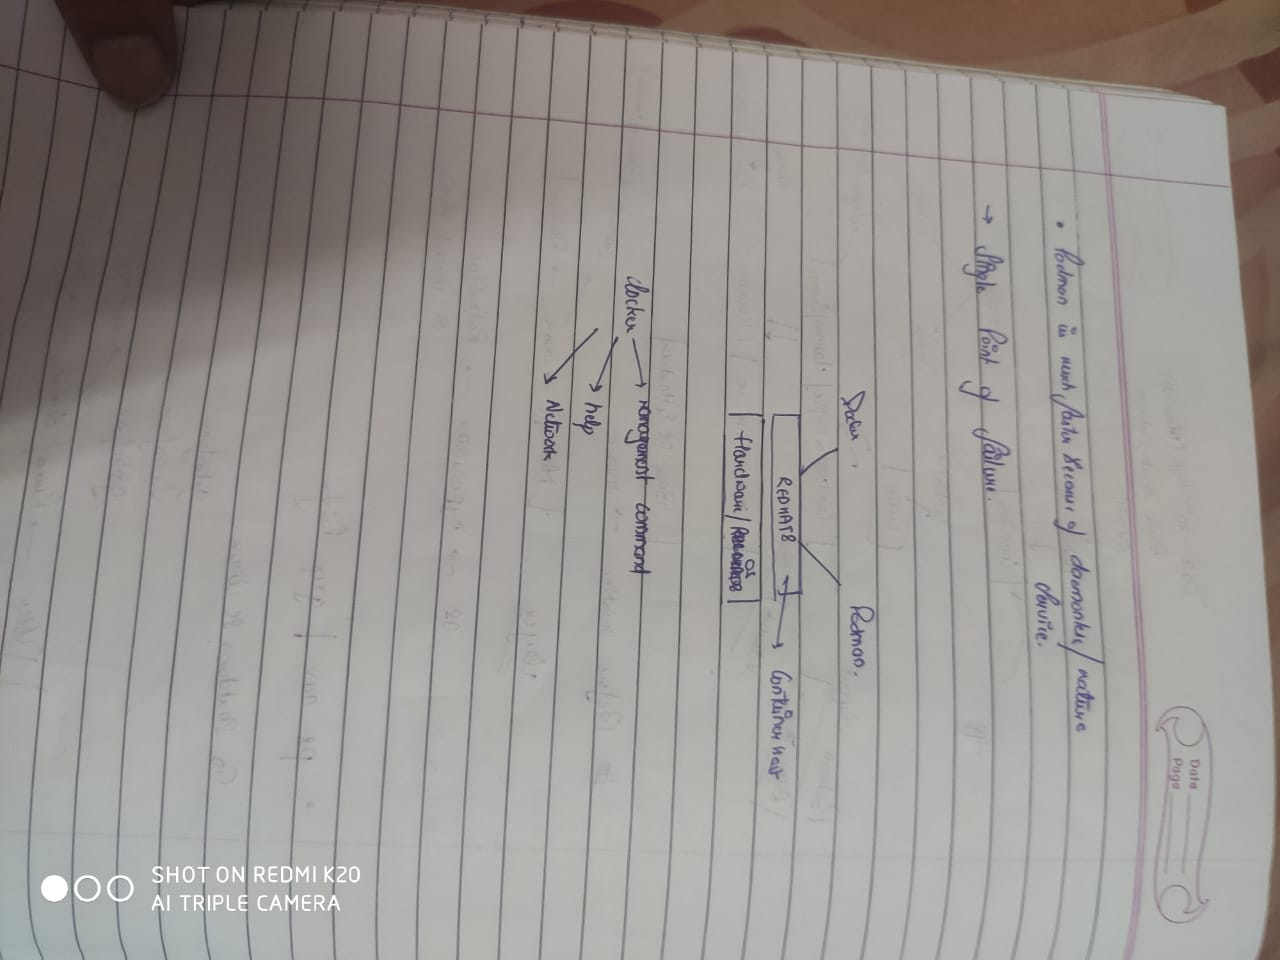 Date
Page
• Podman is much faster because of daemonless/nature
service.
→ Single Point of failure.
Podman.
REDHAT8 → Container host
Hardware/
OS
docker → management command
→ help
→ Network
SHOT ON REDMI K20
AI TRIPLE CAMERA